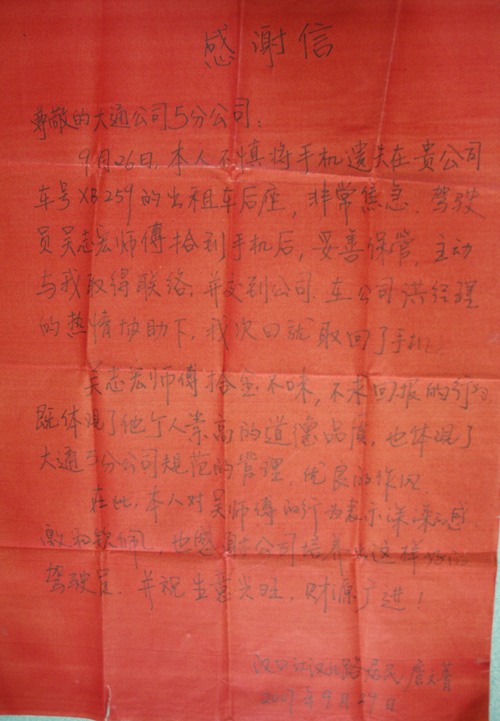 感谢信
尊敬的大通公司5分公司:
9月26日,本人不慎将手机遗失在贵公司
车号XB259的出租车后座,非常焦急,驾驶
员吴志宏师傅拾到手机后,妥善保管,主动
与我取得联络,并交到公司.在公司洪经理
的热情协助下,我次日就取回了手机.
吴志宏师傅拾金不昧,不求回报的行为
既体现了他个人崇高的道德品质,也体现了
大通5分公司规范的管理,优良的作风.
在此,本人对吴师傅的行为表示深深的感
激和钦佩,也感谢公司培养出这样的
驾驶员.并祝生意兴旺,财源广进!
汉口江汉北路居民
2009年9月29日